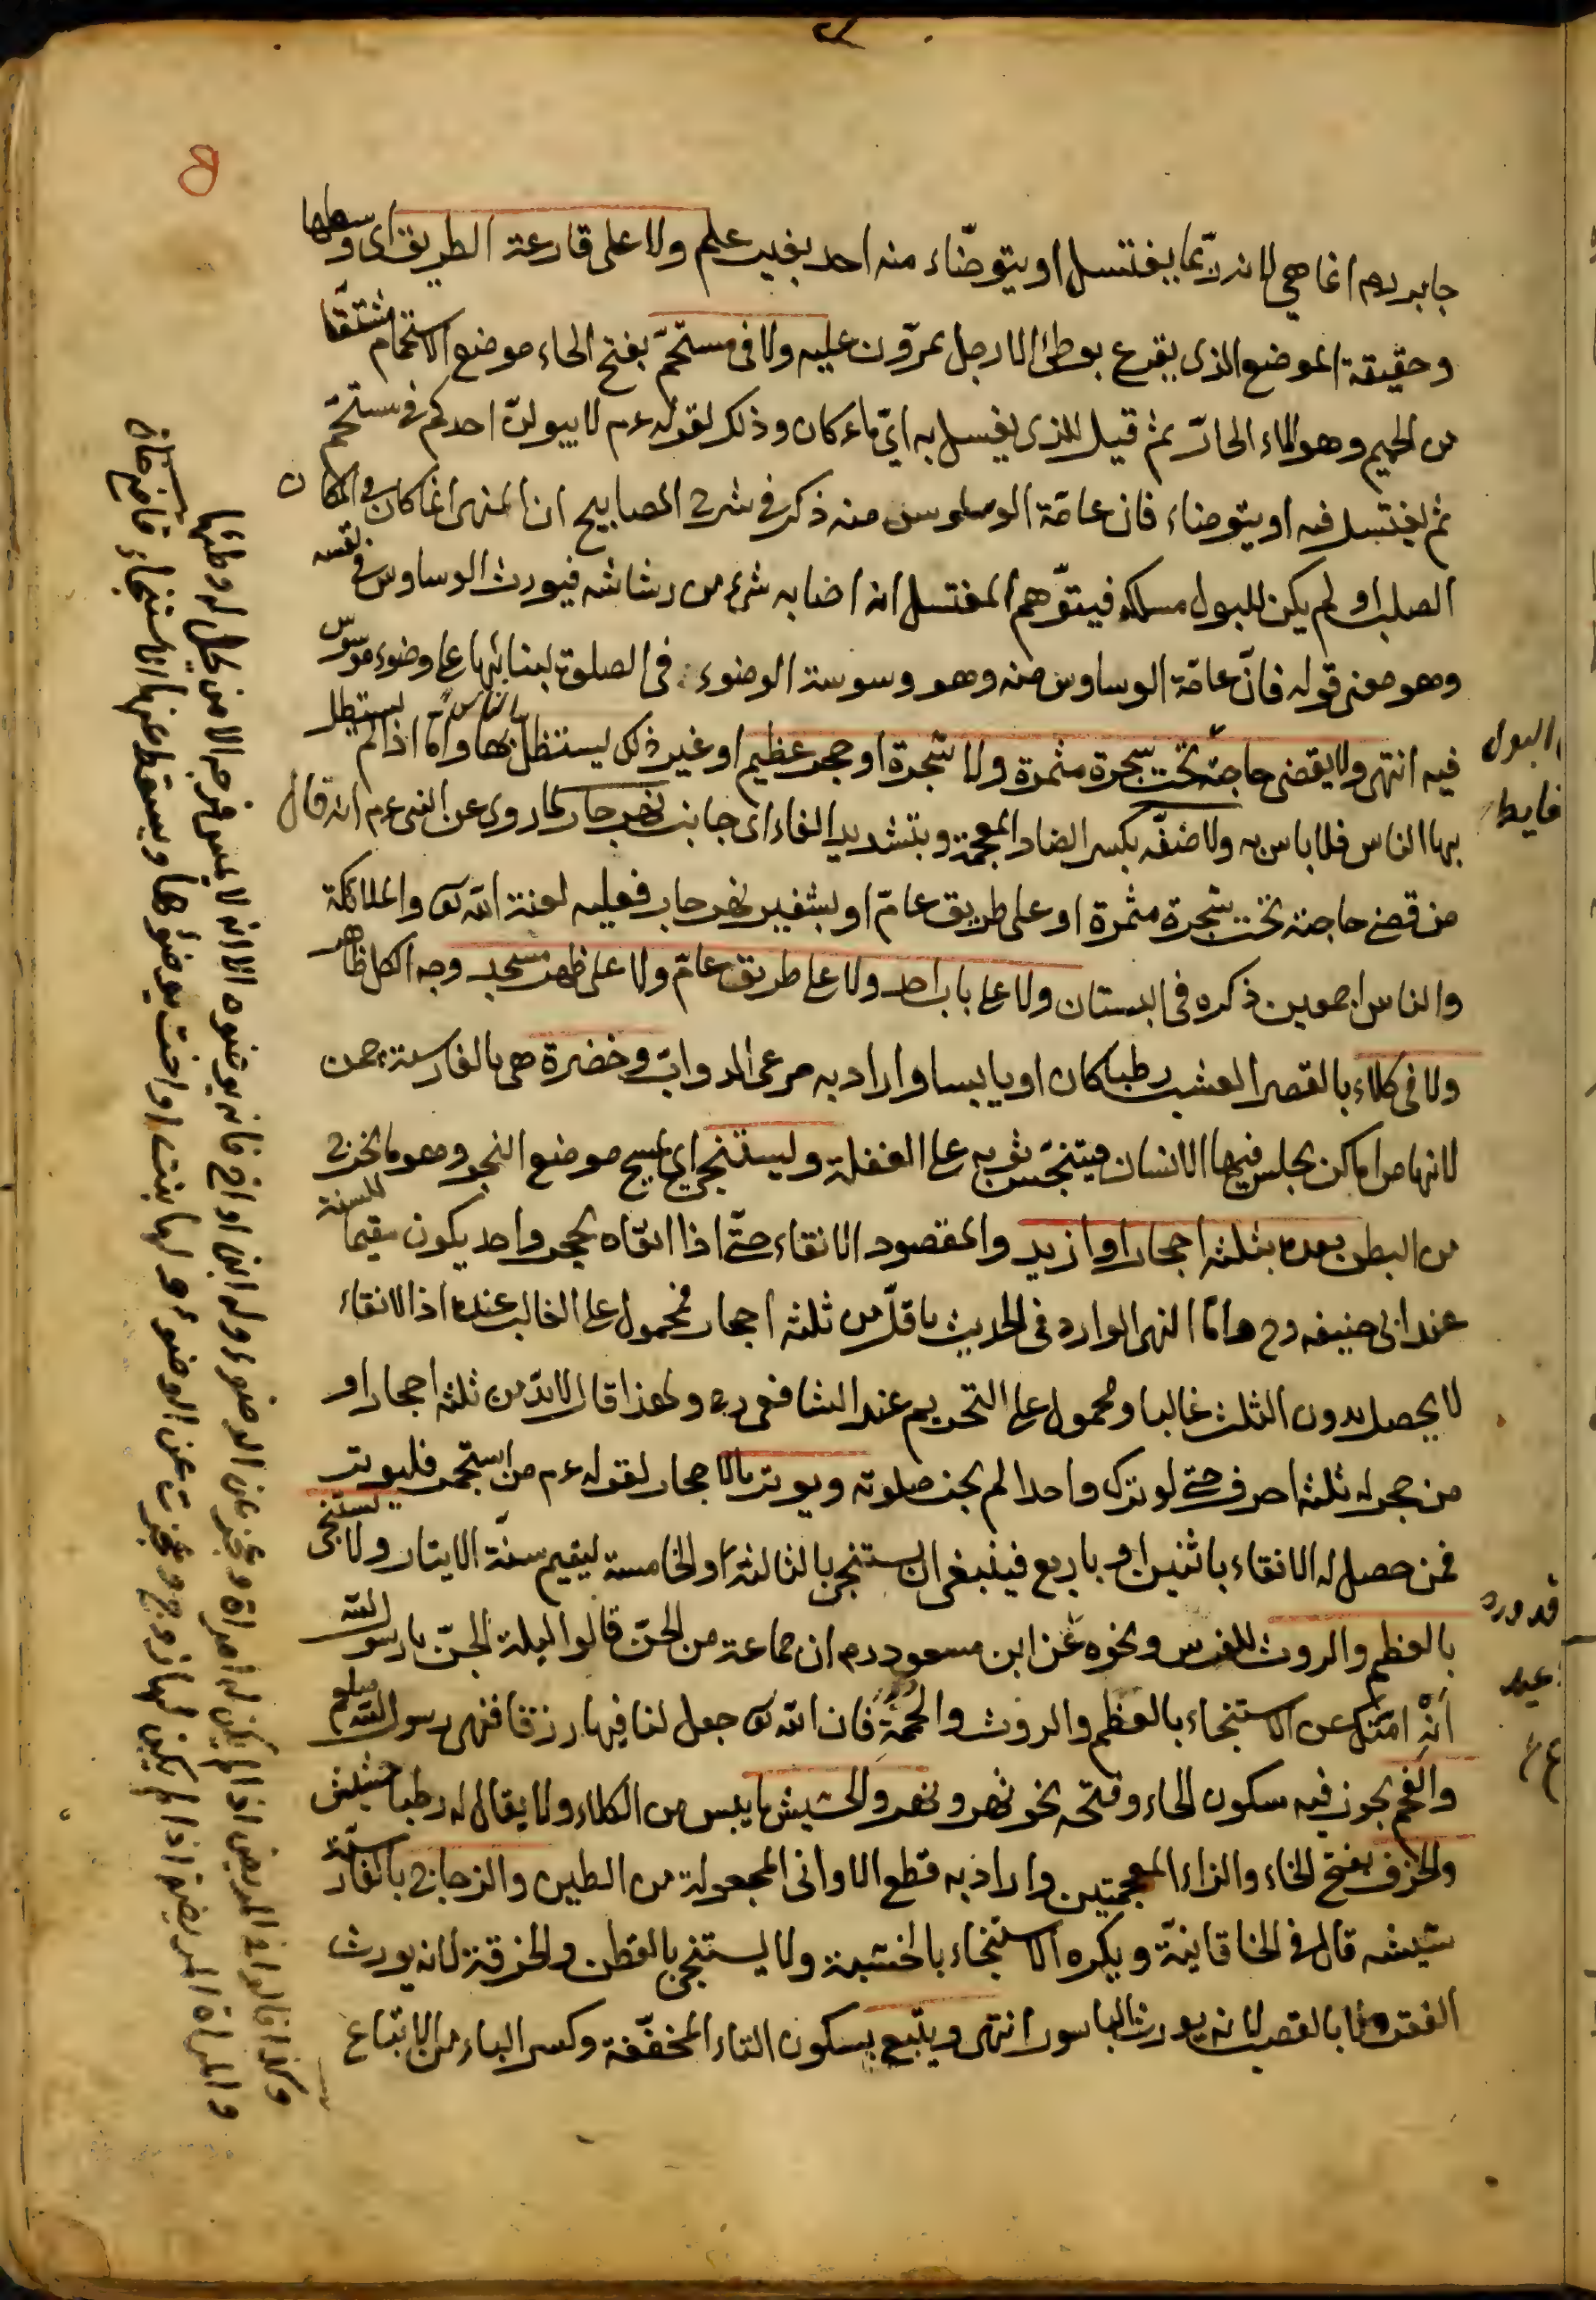 جابر رم انما هي لانه ربما يغتسل او يتوضاء منه احد بغيب علم ولا على قارعة الطريق اى وسطها
وحقيقة الموضع الذى يقرع بوطئ الارجل يمرّون عليه ولا فى مستحمّ بفتح الحاء موضع الاستحمام مشتقّا
من الحميم وهو الماء الحارّ ثم قيل للذى يغسل به اىّ ماء كان وذلك لقوله عم لا يبولنّ احدكم فى مستحمّ
ثم يغتسل فيه او يتوضاء فان عامّة الوسلوس منه ذكر فى شرح المصابيح ان المنهى انما كان فى المكان
الصلب او لم يكن للبول مسلك فيتوّهم المغتسل انه اصابه شئ من رشاشه فيورث الوساوس فى نفسه
وهو معنى قوله فانّ عامّة الوساوس منه وهو وسوسة الوضوء فى الصلوة لبنائها على وضوء موسوس
فيه انتهى ولا يقضى حاجته تحت شجرة مثمرة ولا شجرة او حجر عظيم او غير ذلك يستظل الناس بها واما اذا لم يستظل
بها الناس فلا باس به ولا ضفّة بكسر الضاد المعجمة وبتشديد الفاء اى جانب نهر جار لما روى عن النبى عم انه قال
من قضى حاجته تحت شجرة مثمرة او على طريق عامّ او بشفير نهر جار فعليه لعنة الله تع والملائكة
والناس اجمعين ذكره فى البستان ولا على باب احد ولا على طريق عامّ ولا على ظهر مسجد وجه الكل ظاهر
ولا فى كلاء بالقصر العشب رطبا كان او يابسا واراد به مرعى الدوابّ وخضرة هى بالفارسية چمن
لانها من اماكن يجلس فيها الانسان فيتنجّس ثوبه على الغفلة وليستنجى اى يمسح موضع النجو وهو ما يخرج
من البطن بعده بثلثة احجار او ازيد والمقصود الانقاء حتّى اذا انقاه بحجر واحد يكون مقيما للسنة
عند ابى حنيفه رح وامّا النهى الوارد فى الحديث باقلّ من ثلثة احجار فمحمول على الغالب عنده اذ الانقاء
لا يحصل بدون الثلث غالبا ومحمول على التحريم عند الشافعى ره ولهذا قال لا بدّ من ثلثة احجار او
من حجر له ثلثة احرف حتى لو ترك واحدا لم يجز صلوته ويوتر بالاحجار لقوله عم من استجمر فليوتر
فمن حصل له الانقاء باثنين او باربع فينبغى ان يستنجى بالثالثة او الخامسة ليقيم سنّة الايتار ولا يستنجى
بالعظم والروث للفرس ونحوه عن ابن مسعود رم ان جماعة من الجنّ قالوا ليلة الجنّ يا رسول الله
انْهِ امّتك عن الاستنجاء بالعظم والروث والحممة فان الله تع جعل لنا فيها رزقا فنهى رسول الله صلعم
والفحم يجوز فيه سكون الحاء وفتحه نحو نهر ونهر والحشيش ما يبس من الكلاء ولا يقال له رطبا حشيش
والخزف بفتح الخاء والزاء المعجمتين واراد به قطع الاوانى المجعولة من الطين والزجاج بالفارسيّة
شيشه قال فى الخاقانيّة ويكره الاستنجاء بالخشبة ولا يستنجى بالقطن والخرقة لانه يورث
الفقر ولا بالقصب لانه يورث الباسور انتهى ويتبع بسكون التاء المخفّفة وكسر الباء من الاتباع
البول
غايط
وكذا قالوا فى المريض اذا لم يكن له امراة وعجز عن الوضوء وله ابن او اخ فانه يوضئه الا انه لا يمس فرجه الا من يحل له وطئها
والمراة المريضة اذا لم يكن لها زوج وعجزت عن الوضوء ولها بنت او اخت يوضئوها ويسقط عنها الاستنجاء قاضى خان